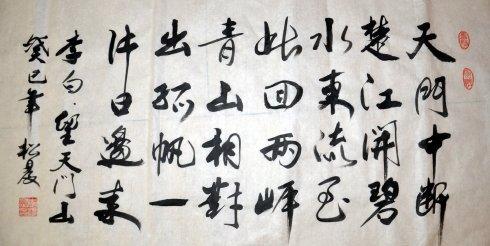 天門中断
楚江開碧
水東流至
此回两岸
青山相對
出孤帆一
片日邊来
李白·望天门山
癸巳年 松